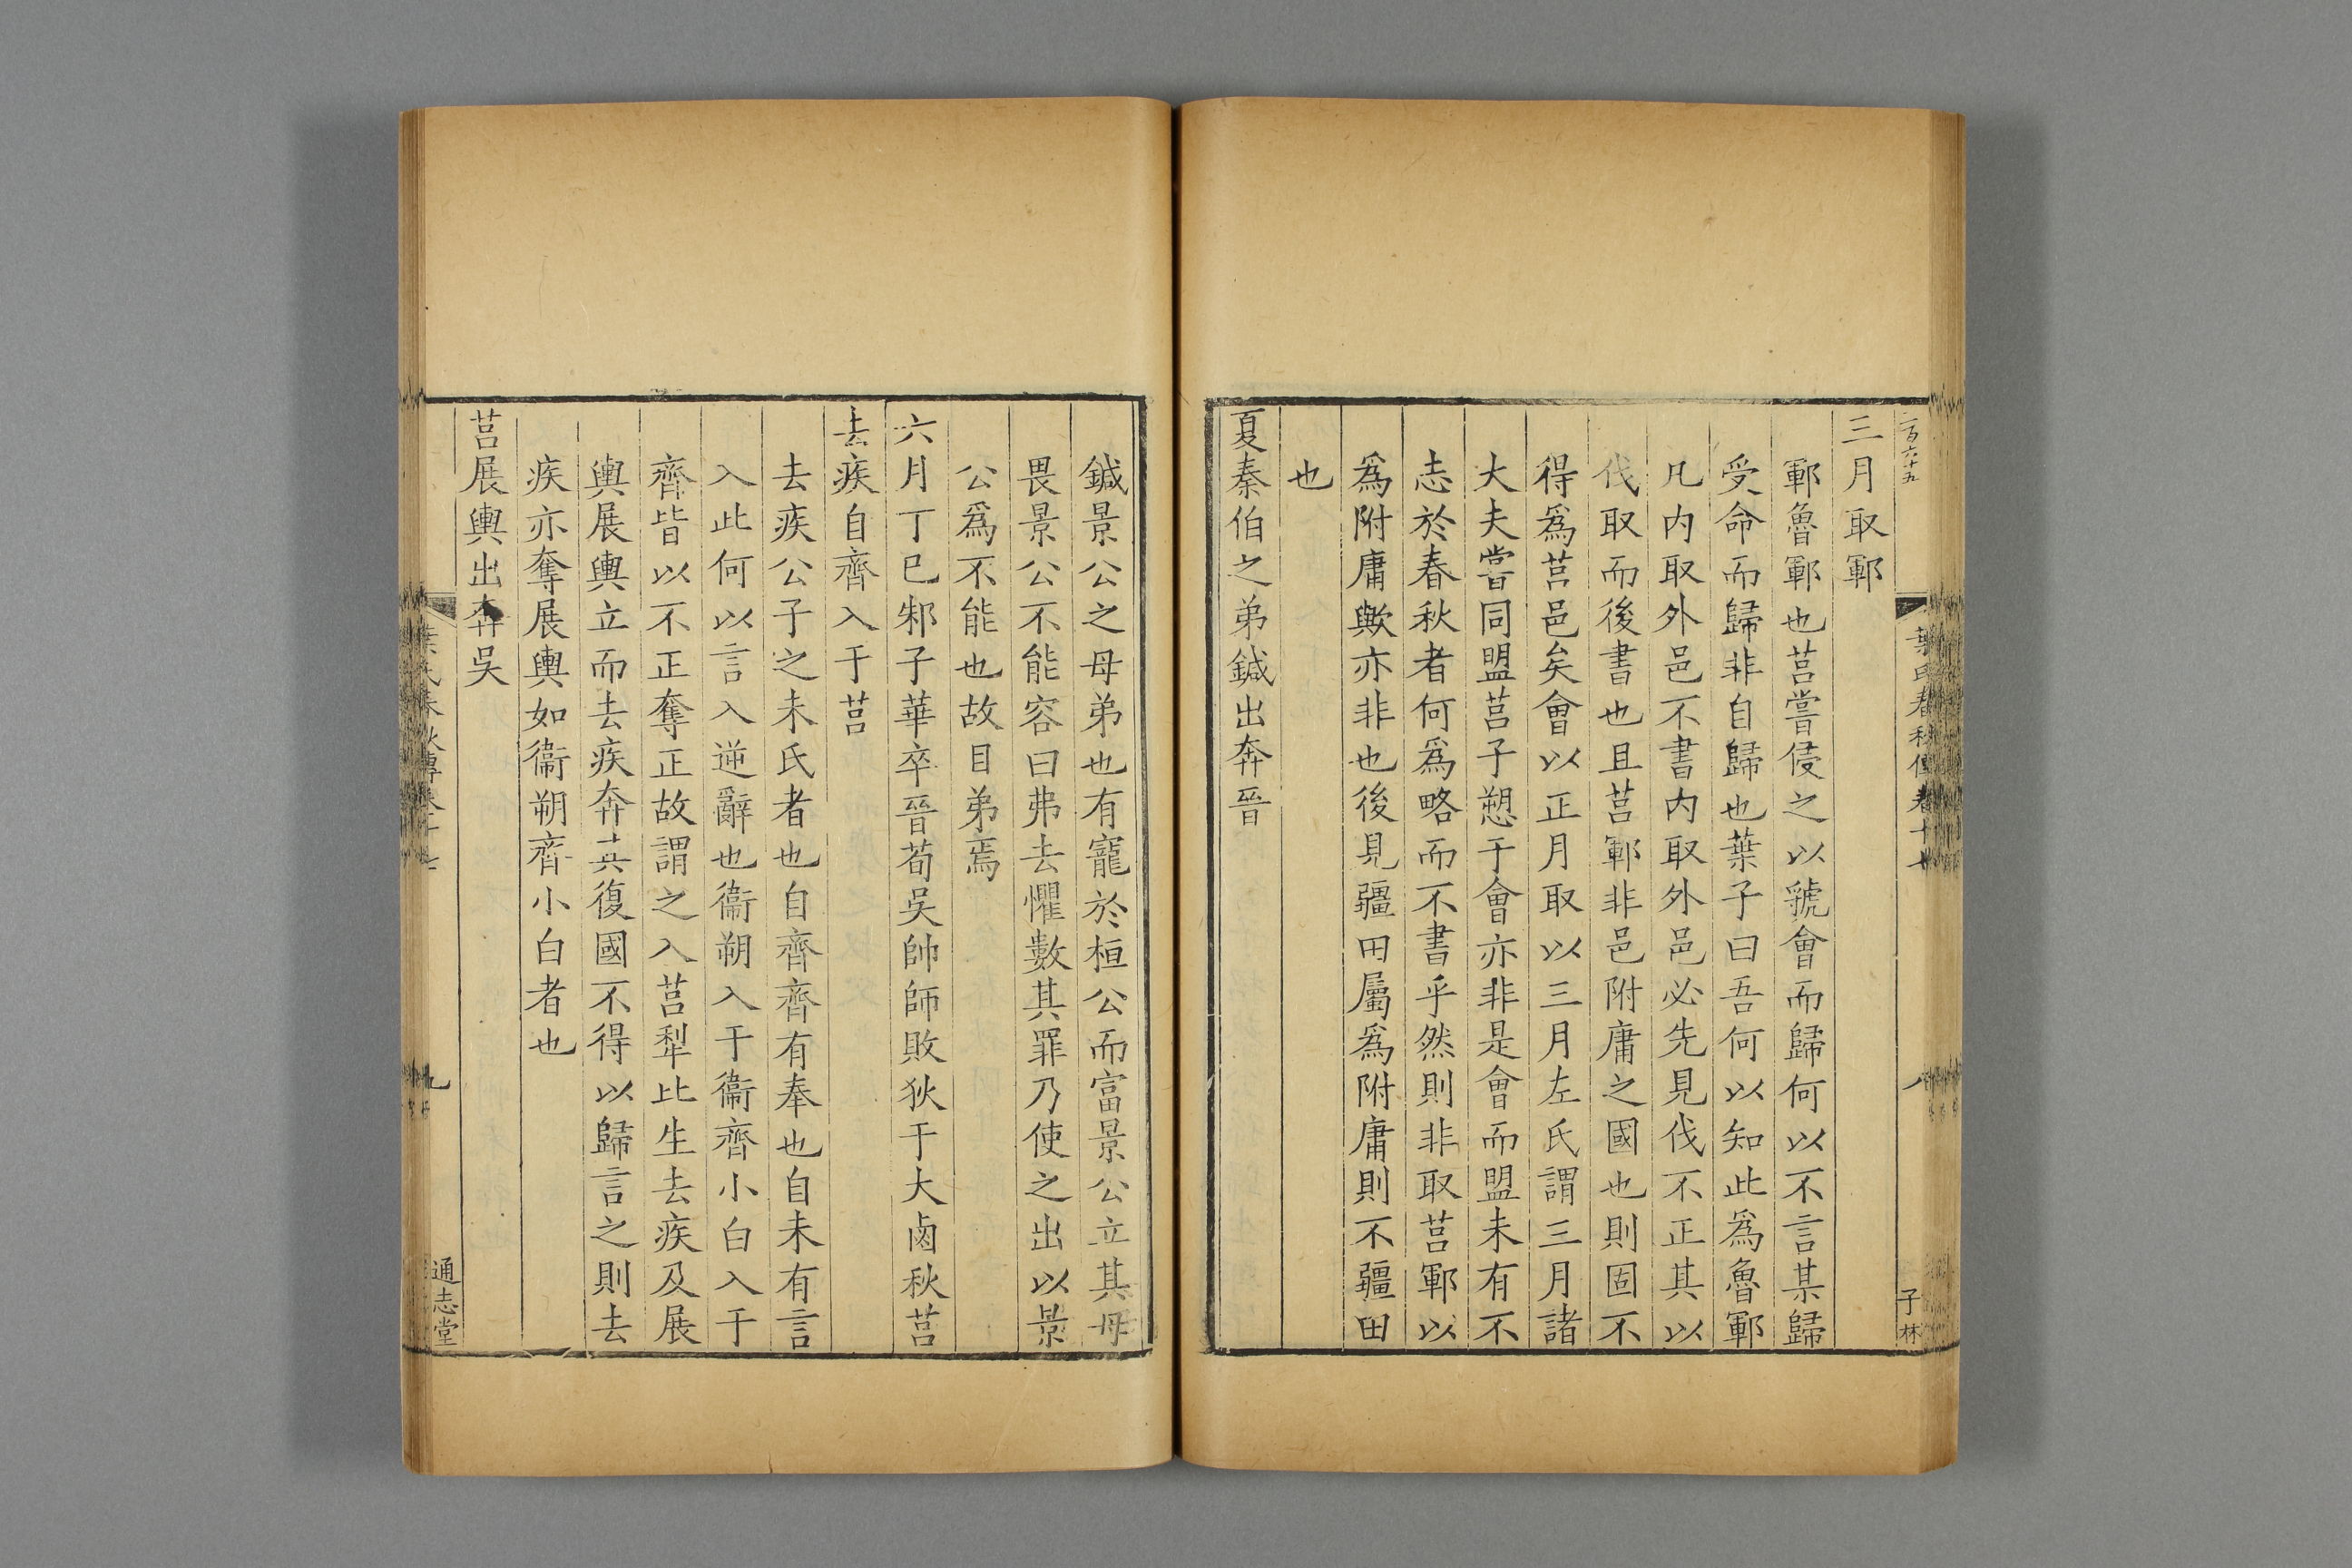 二百六十五
葉氏春秋傳卷十七
八
子林
三月取鄆
鄆魯鄆也莒嘗侵之以虢會而歸何以不言某歸
受命而歸非自歸也葉子曰吾何以知此爲魯鄆
凡内取外邑不書内取外邑必先見伐不正其以
伐取而後書也且莒鄆非邑附庸之國也則固不
得爲莒邑矣會以正月取以三月左氏謂三月諸
大夫嘗同盟莒子愬于會亦非是會而盟未有不
志於春秋者何爲略而不書乎然則非取莒鄆以
爲附庸歟亦非也後見疆田屬爲附庸則不疆田
也
夏秦伯之弟鍼出奔晉
鍼景公之母弟也有寵於桓公而富景公立其母
畏景公不能容曰弗去懼數其罪乃使之出以景
公爲不能也故目弟焉
六月丁巳邾子華卒晉荀吳帥師敗狄于大鹵秋莒
去疾自齊入于莒
去疾公子之未氏者也自齊齊有奉也自未有言
入此何以言入逆辭也衞朔入于衞齊小白入于
齊皆以不正奪正故謂之入莒犁比生去疾及展
輿展輿立而去疾奔其復國不得以歸言之則去
疾亦奪展輿如衞朔齊小白者也
莒展輿出奔吳
葉氏春秋傳卷十七
九
通志堂